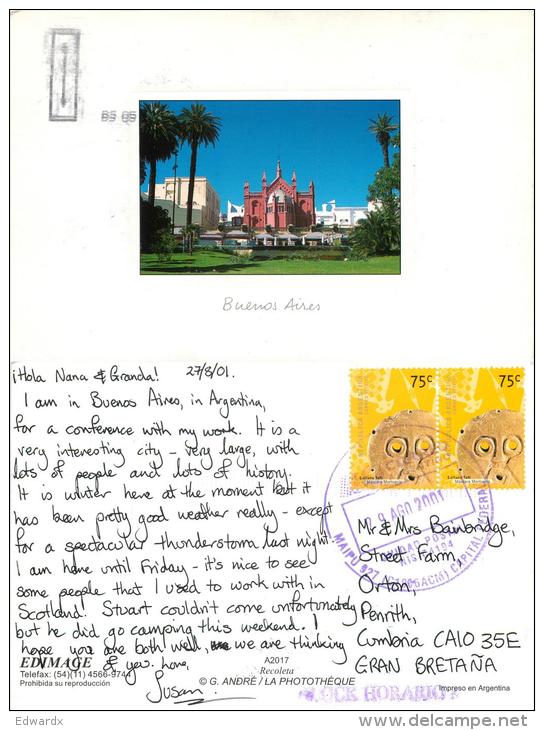 BS 05
Buenos Aires
¡Hola Nana & Granda! 27/8/01.
I am in Buenos Aires, in Argentina,
for a conference with my work. It is a
very interesting city - very large, with
lots of people and lots of history.
It is winter here at the moment but it
has been pretty good weather really - except
for a spectacular thunderstorm last night!
I am here until Friday - it's nice to see
some people that I used to work with in
Scotland! Stuart couldn't come unfortunately
but he did go camping this weekend. I
hope you are both well, we are thinking
of you. love,
Susan
75c
75c
AGO 2001
MAIPU 927
CAPITAL FEDERAL
Mr & Mrs Bainbridge,
Street Farm,
Orton,
Penrith,
Cumbria CA10 3SE
GRAN BRETAÑA
EDIMAGE
Telefax: (54)(11) 4566-9744
Prohibida su reproducción
A2017
Recoleta
© G. ANDRÉ / LA PHOTOTHÈQUE
Impreso en Argentina
HORARIO
Edwardx
www.delcampe.net